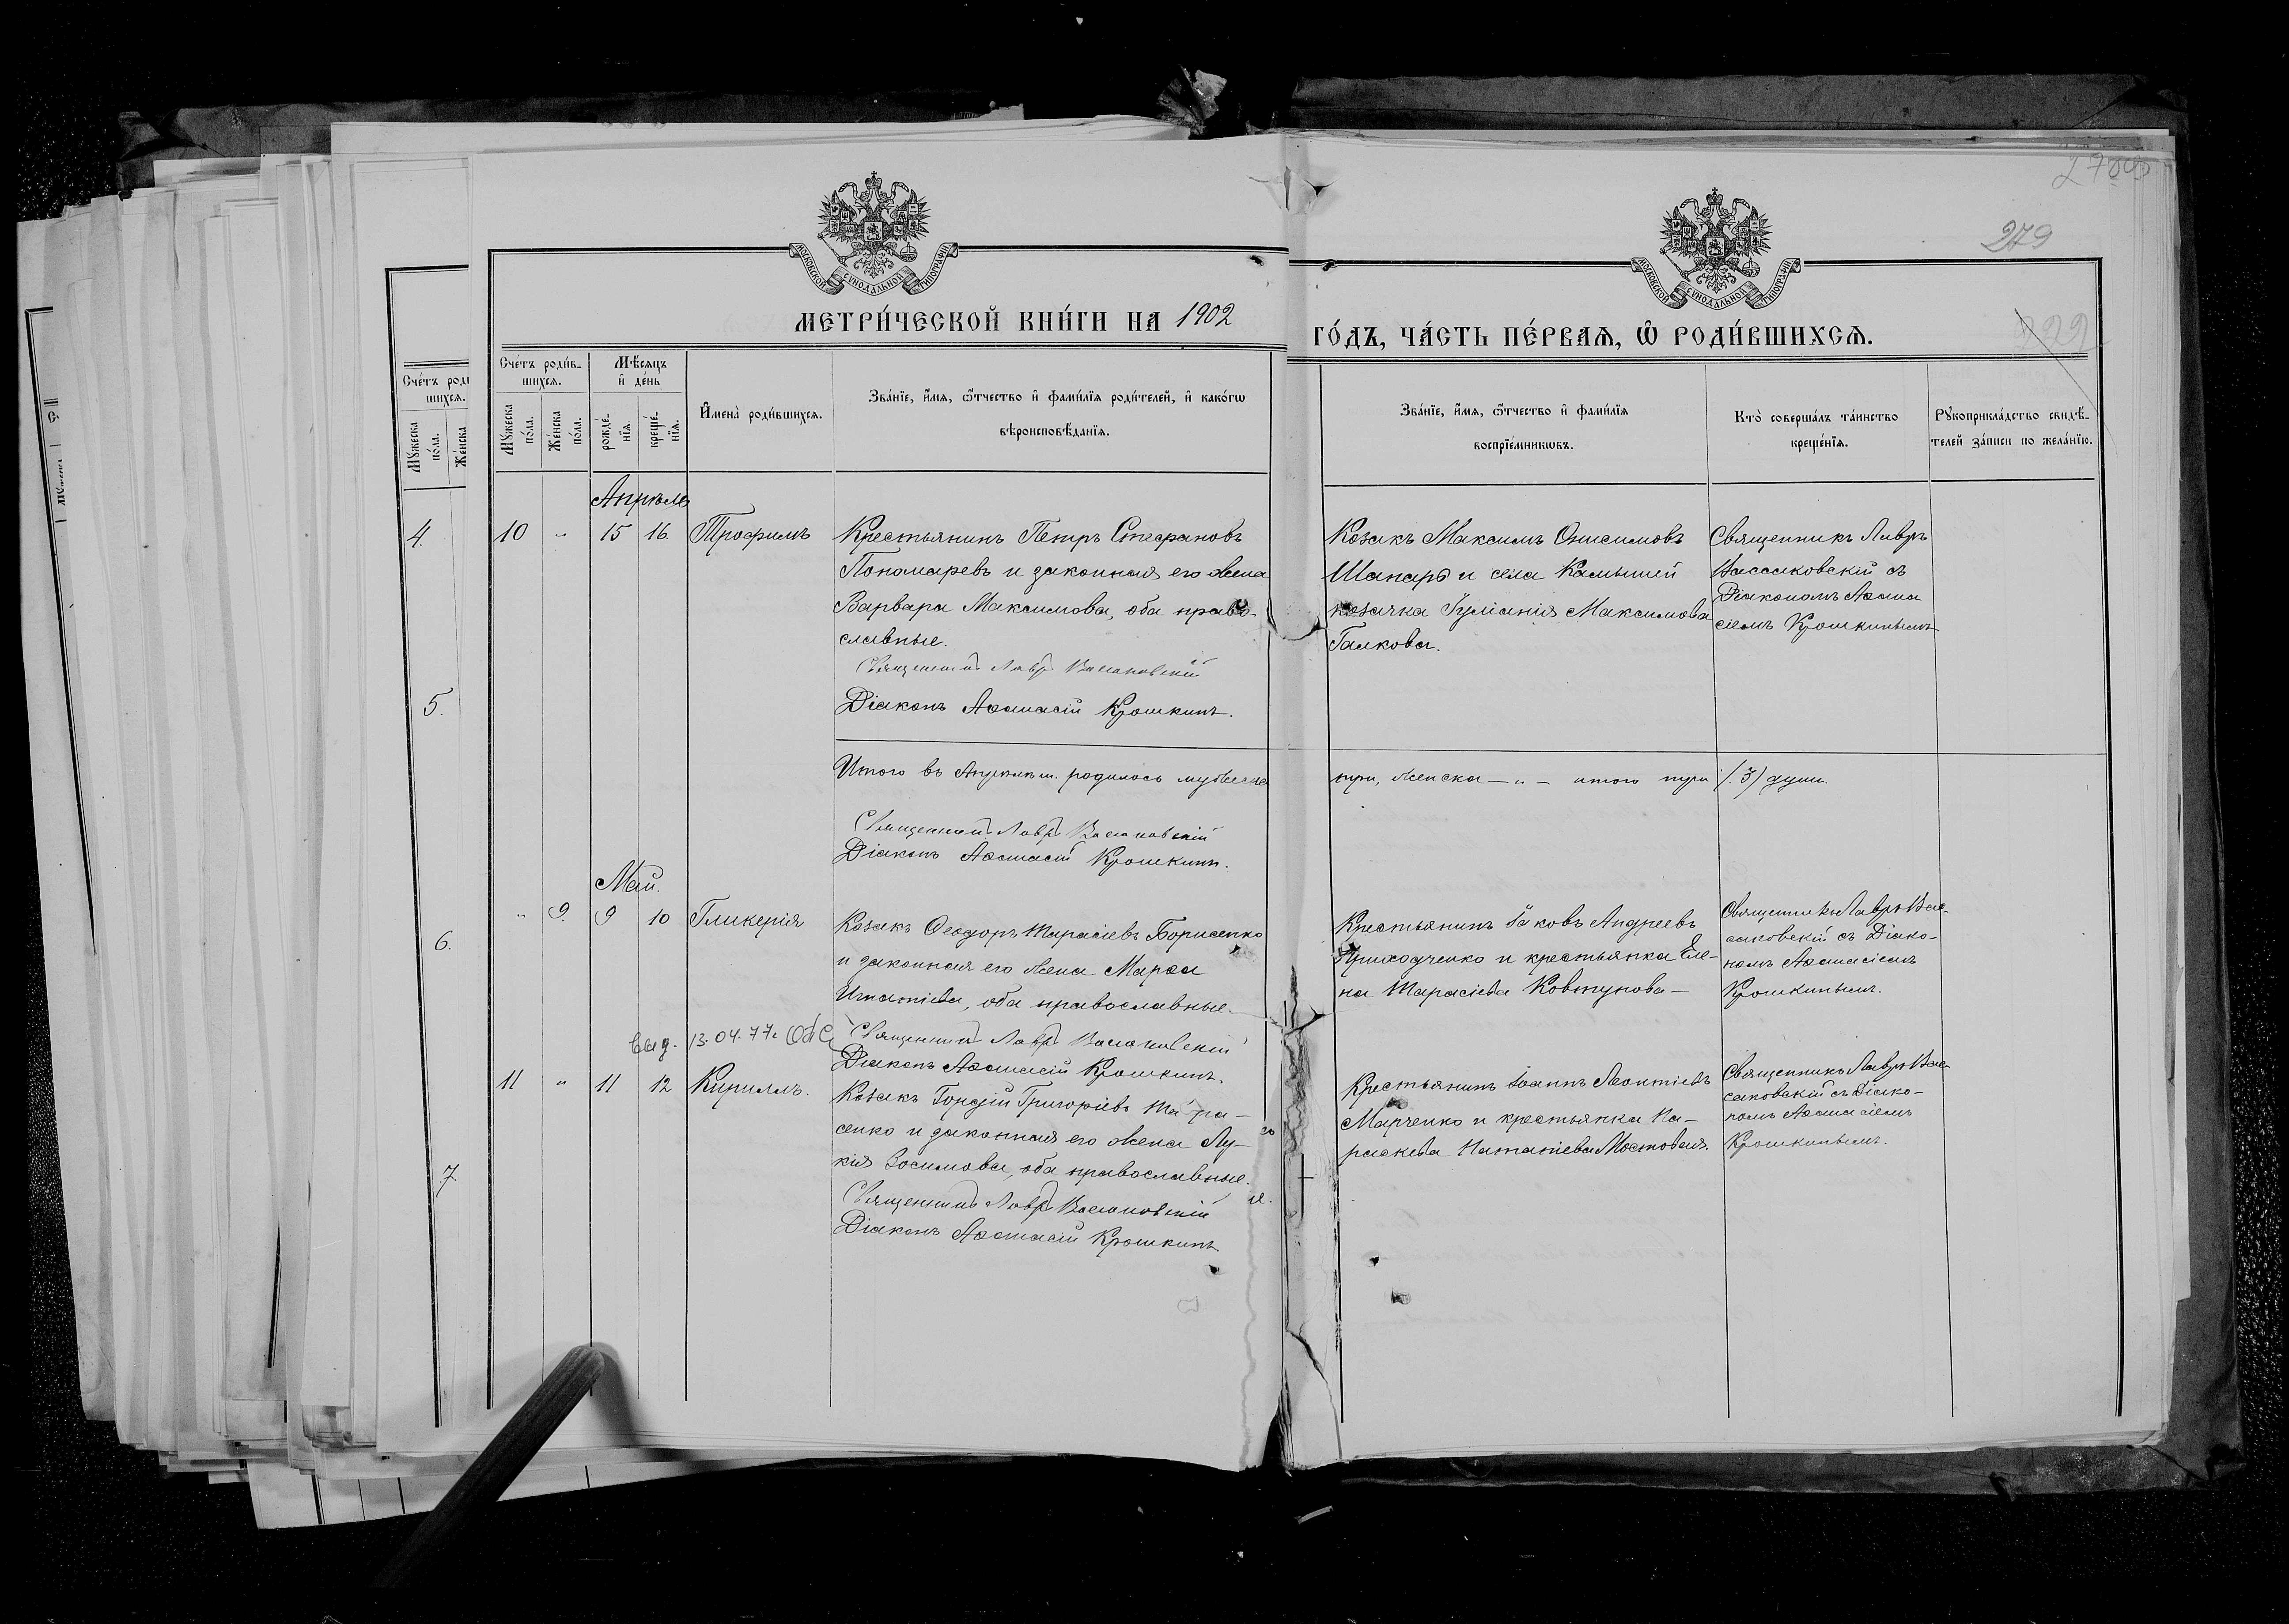 270об
279
222
МОСКОВСКОЙ СУНОДАЛЬНОЙ ТИПОГРАФІИ
МОСКОВСКОЙ СУНОДАЛЬНОЙ ТИПОГРАФІИ
МЕТРИ́ЧЕСКОЙ КНИ́ГИ НА 1902
ГО́ДЪ, ЧА́СТЬ ПЕ́РВАѦ, Ѡ҆ РОДИ́ВШИХСѦ.
Сче́тъ роди́в-
шихсѧ.
Мꙋ́жеска
по́ла.
Же́нска
по́ла.
Мѣ́сѧцъ
и҆ де́нь
рожде́-
нїѧ.
креще́-
нїѧ.
И҆мена̀ роди́вшихсѧ.
Зва́нїе, и҆́мѧ, ѻ҆́тчество и҆ фами́лїѧ роди́телей, и҆ како́гѡ
вѣроисповѣ́данїѧ.
Зва́нїе, и҆́мѧ, ѻ҆́тчество и҆ фами́лїѧ
воспрїе́мникѡвъ.
Кто̀ соверша́лъ та́инство
креще́нїѧ.
Рꙋкоприкла́дство свидѣ́-
телей за́писи по жела́нїю.
Сче́тъ род
шихсѧ.
Мꙋ́жеска
по́ла.
Же́нска
4.
5.
6.
7.
Апрѣль
10 " 15 16 Трофимъ
Крестьянинъ Петръ Стефановъ
Пономаревъ и законная его жена
Варвара Максимова, оба право-
славные.
Священникъ Лавръ Вассаковскій
Діаконъ Аѳанасій Крошкинъ.
Козакъ Максимъ Онисимовъ
Шапарь и села Камышей
козачка Іуліанія Максимова
Галкова.
Священникъ Лавръ
Вассаковскій съ
Діакономъ Аѳана
сіемъ Крошкинымъ
Итого въ Апрѣлѣ м. родилось мужеска
три, женска — " — итого три (3) души.
Священникъ Лавръ Вассаковскій
Діаконъ Аѳанасій Крошкинъ.
Май.
" 9. 9 10 Гликерія
Козакъ Ѳеодоръ Тарасіевъ Борисенко
и законная его жена Марѳа
Игнатіева, оба православные.
Священникъ Лавръ Вассаковскій
Діаконъ Аѳанасій Крошкинъ.
Крестьянинъ Іаковъ Андреевъ
Приходченко и крестьянка Еле-
на Тарасіева Ковтунова —
Священникъ Лавръ Вас-
саковскій съ Діако-
номъ Аѳанасіемъ
Крошкинымъ.
выд. 13.04.77г.
11 " 11 12 Кириллъ.
Козакъ Гордій Григоріевъ Тара-
сенко и законная его жена Лу-
кія Зосимова, оба православные.
Священникъ Лавръ Вассаковскій
Діаконъ Аѳанасій Крошкинъ
Крестьянинъ Іоаннъ Леонтіевъ
Марченко и крестьянка Па-
раскева Игнатіева Мостовая.
Священникъ Лавръ Вас-
саковскій съ Діако-
номъ Аѳанасіемъ
Крошкинымъ.